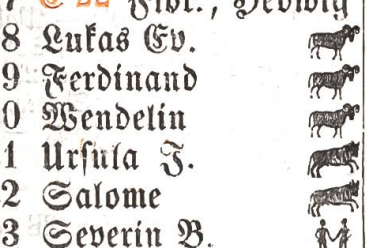 Flor., Hedwig
8 Lukas Ev.
9 Ferdinand
0 Wendelin
1 Ursula J.
2 Salome
3 Severin B.